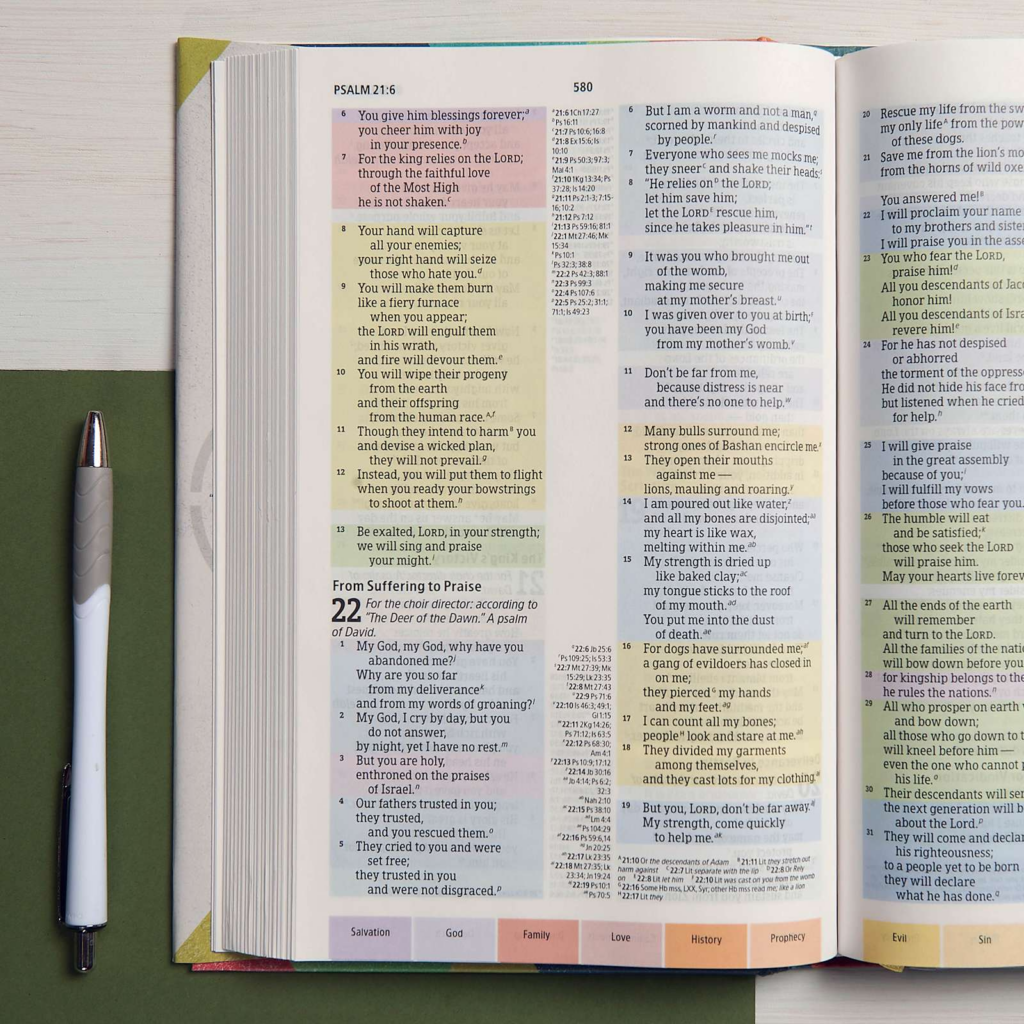 PSALM 21:6
580
6 You give him blessings forever;a
you cheer him with joy
in your presence.b
7 For the king relies on the LORD;
through the faithful love
of the Most High
he is not shaken.c
8 Your hand will capture
all your enemies;
your right hand will seize
those who hate you.d
9 You will make them burn
like a fiery furnace
when you appear;
the LORD will engulf them
in his wrath,
and fire will devour them.e
10 You will wipe their progeny
from the earth
and their offspring
from the human race.A,f
11 Though they intend to harmB you
and devise a wicked plan,
they will not prevail.g
12 Instead, you will put them to flight
when you ready your bowstrings
to shoot at them.h
13 Be exalted, LORD, in your strength;
we will sing and praise
your might.i
From Suffering to Praise
22 For the choir director: according to
"The Deer of the Dawn." A psalm
of David.
1 My God, my God, why have you
abandoned me?j
Why are you so far
from my deliverancek
and from my words of groaning?l
2 My God, I cry by day, but you
do not answer,
by night, yet I have no rest.m
3 But you are holy,
enthroned on the praises
of Israel.n
4 Our fathers trusted in you;
they trusted,
and you rescued them.o
5 They cried to you and were
set free;
they trusted in you
and were not disgraced.p
a21:6 1Ch 17:27
bPs 16:11
c21:7 Ps 10:6; 16:8
d21:8 Ex 15:6; Is
10:10
e21:9 Ps 50:3; 97:3;
Mal 4:1
f21:10 1Kg 13:34; Ps
37:28; Is 14:20
g21:11 Ps 2:1-3; 7:15-
16; 10:2
h21:12 Ps 7:12
i21:13 Ps 59:16; 81:1
j22:1 Mt 27:46; Mk
15:34
kPs 10:1
lPs 32:3; 38:8
m22:2 Ps 42:3; 88:1
n22:3 Ps 99:3
o22:4 Ps 107:6
p22:5 Ps 25:2; 31:1;
71:1; Is 49:23
q22:6 Jb 25:6
rPs 109:25; Is 53:3
s22:7 Mt 27:39; Mk
15:29; Lk 23:35
t22:8 Mt 27:43
u22:9 Ps 71:6
v22:10 Is 46:3; 49:1;
Gl 1:15
w22:11 2Kg 14:26;
Ps 71:12; Is 63:5
x22:12 Ps 68:30;
Am 4:1
y22:13 Ps 10:9; 17:12
z22:14 Jb 30:16
aaJb 4:14; Ps 6:2;
32:3
abNah 2:10
ac22:15 Ps 38:10
adLm 4:4
aePs 104:29
af22:16 Ps 59:6,14
agJn 20:25
ah22:17 Lk 23:35
ai22:18 Mt 27:35; Lk
23:34; Jn 19:24
aj22:19 Ps 10:1
akPs 70:5
6 But I am a worm and not a man,q
scorned by mankind and despised
by people.r
7 Everyone who sees me mocks me;
they sneerC and shake their heads:s
8 "He relies onD the LORD;
let him save him;
let the LORDE rescue him,
since he takes pleasure in him."t
9 It was you who brought me out
of the womb,
making me secure
at my mother's breast.u
10 I was given over to you at birth;F
you have been my God
from my mother's womb.v
11 Don't be far from me,
because distress is near
and there's no one to help.w
12 Many bulls surround me;
strong ones of Bashan encircle me.x
13 They open their mouths
against me —
lions, mauling and roaring.y
14 I am poured out like water,z
and all my bones are disjointed;aa
my heart is like wax,
melting within me.ab
15 My strength is dried up
like baked clay;ac
my tongue sticks to the roof
of my mouth.ad
You put me into the dust
of death.ae
16 For dogs have surrounded me;af
a gang of evildoers has closed in
on me;
they piercedG my hands
and my feet.ag
17 I can count all my bones;
peopleH look and stare at me.ah
18 They divided my garments
among themselves,
and they cast lots for my clothing.ai
19 But you, LORD, don't be far away.aj
My strength, come quickly
to help me.ak
A21:10 Or the descendants of Adam B21:11 Lit they stretch out
harm against C22:7 Lit separate with the lip D22:8 Or Rely
on E22:8 Lit let him F22:10 Lit was cast on you from the womb
G22:16 Some Hb mss, LXX, Syr; other Hb mss read me; like a lion
H22:17 Lit they
Salvation
God
Family
Love
History
Prophecy
20 Rescue my life from the
my only lifeA from the
of these dogs.
21 Save me from the lion's
from the horns of wild
You answered me!B
22 I will proclaim your name
to my brothers and
I will praise you in the
23 You who fear the LORD,
praise him!d
All you descendants of
honor him!
All you descendants of
revere him!e
24 For he has not despised
or abhorred
the torment of the
He did not hide his face
but listened when he cried
for help.h
25 I will give praise
in the great assembly
because of you;i
I will fulfill my vows
before those who fear you.
26 The humble will eat
and be satisfied;k
those who seek the LORD
will praise him.
May your hearts live
27 All the ends of the earth
will remember
and turn to the LORD.
All the families of the
will bow down before you
28 for kingship belongs to
he rules the nations.n
29 All who prosper on earth
and bow down;
all those who go down to
will kneel before him —
even the one who cannot
his life.o
30 Their descendants will
the next generation will
about the Lord.p
31 They will come and
his righteousness;
to a people yet to be born
they will declare
what he has done.q
Evil
Sin